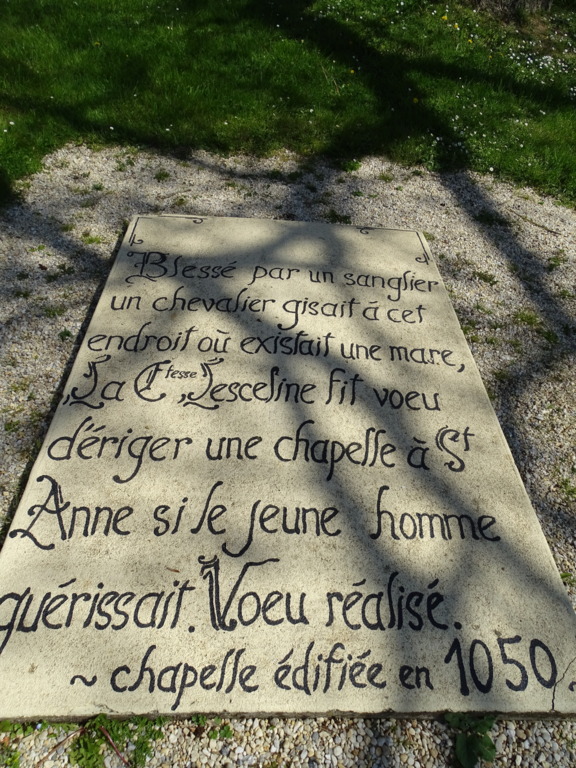 Blessé par un sanglier
un chevalier gisait à cet
endroit où existait une mare,
La Ctesse Lesceline fit voeu
d'ériger une chapelle à St
Anne si le jeune homme
guérissait. Voeu réalisé.
~ chapelle édifiée en 1050.